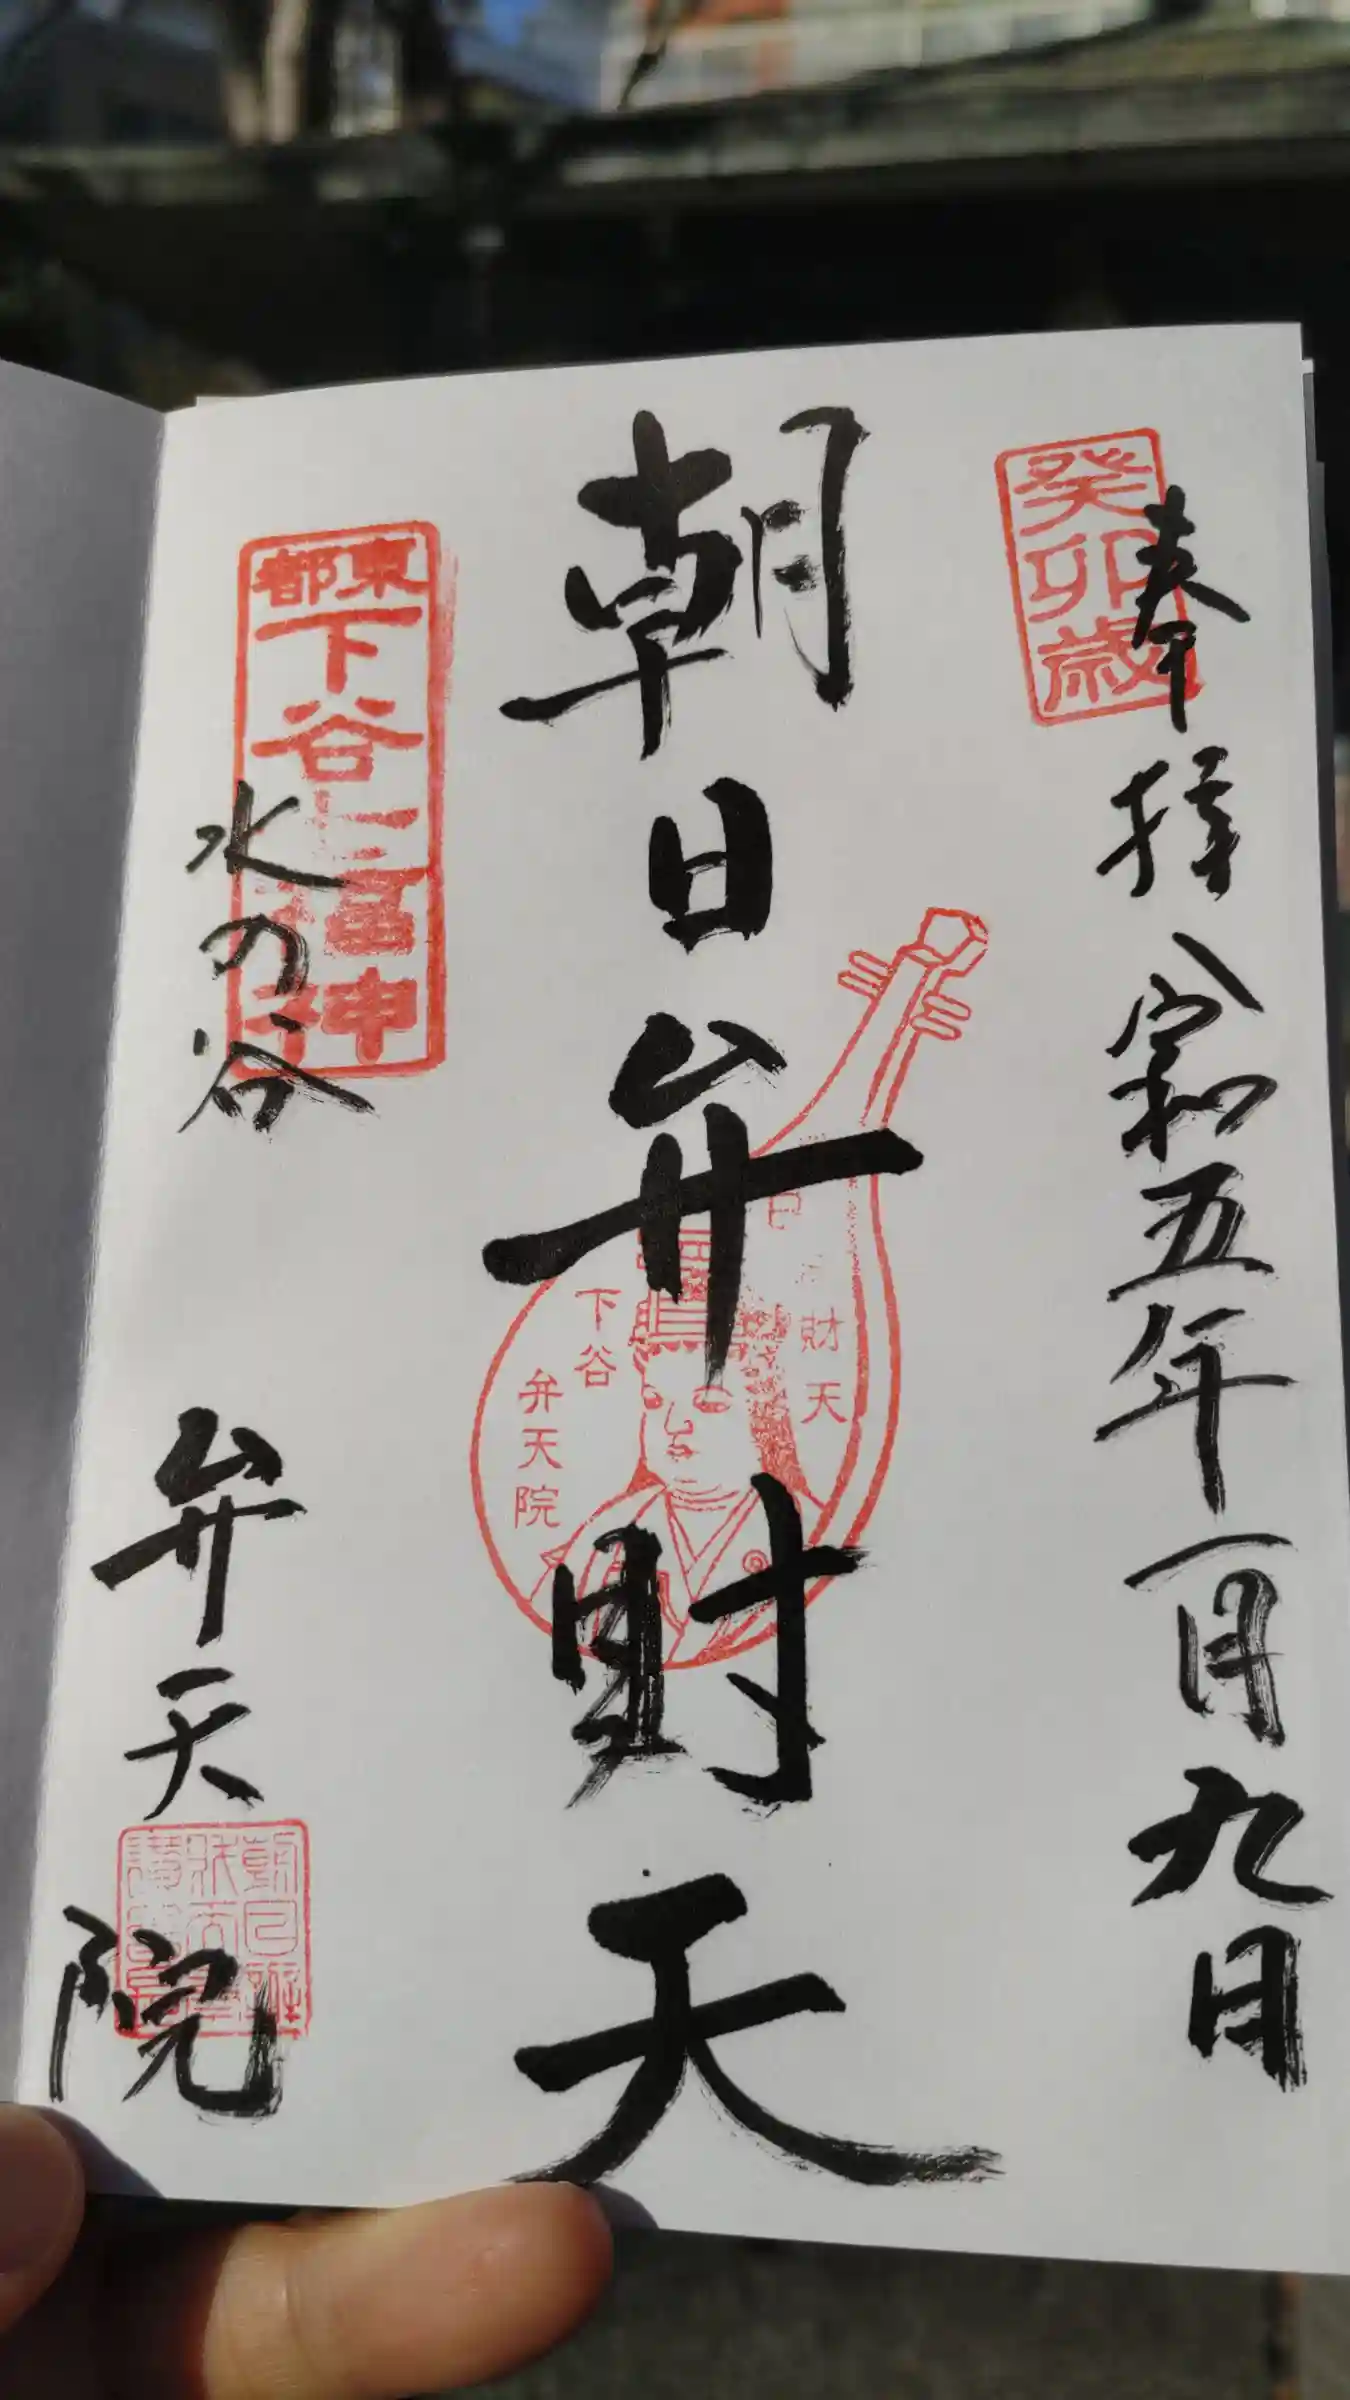 癸卯歳
奉拝 令和五年一月九日
朝日弁財天
財天
下谷
弁天院
東都
下谷七福神
水の谷
弁天院